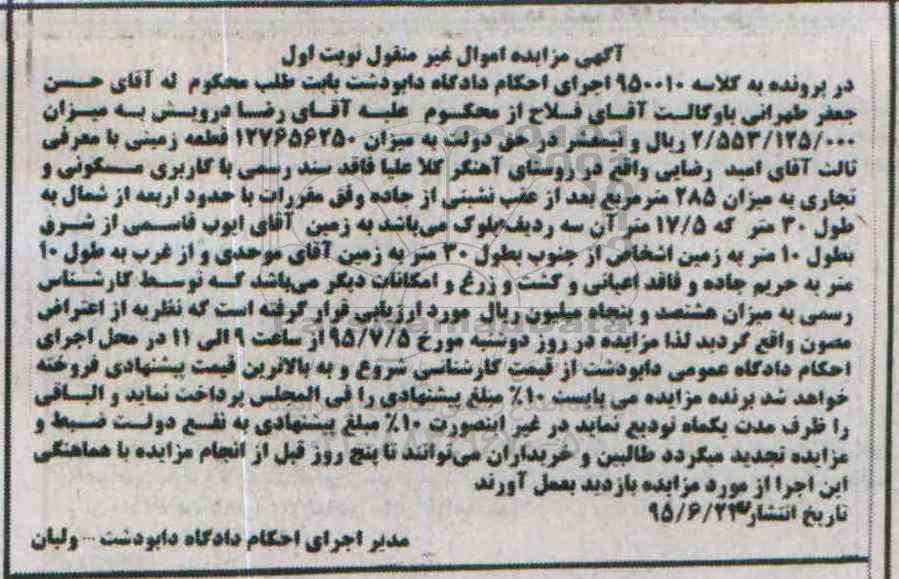 آگهی مزایده اموال غیر منقول نوبت اول
در پرونده به کلاسه ۹۵۰۰۱۰ اجرای احکام دادگاه دابودشت بابت طلب محکوم له آقای حسن
جعفر طهرانی باوکالت آقای فلاح از محکوم علیه آقای رضا درویش به میزان
۲/۵۵۳/۱۲۵/۰۰۰ ریال و نیمعشر در حق دولت به میزان ۱۲۷۶۵۶۲۵۰ قطعه زمینی با معرفی
ثالث آقای امید رضایی واقع در روستای آهنگر کلا علیا فاقد سند رسمی با کاربری مسکونی و
تجاری به میزان ۲۸۵ مترمربع بعد از عقب نشینی از جاده وفق مقررات با حدود اربعه از شمال به
طول ۳۰ متر که ۱۷/۵ متر آن سه ردیف بلوک می‌باشد به زمین آقای ایوب قاسمی از شرق
بطول ۱۰ متر به زمین اشخاص از جنوب بطول ۳۰ متر به زمین آقای موحدی و از غرب به طول ۱۰
متر به حریم جاده و فاقد اعیانی و کشت و زرع و امکانات دیگر می‌باشد که توسط کارشناس
رسمی به میزان هشتصد و پنجاه میلیون ریال مورد ارزیابی قرار گرفته است که نظریه از اعتراض
مصون واقع گردید لذا مزایده در روز دوشنبه مورخ ۹۵/۷/۵ از ساعت ۹ الی ۱۱ در محل اجرای
احکام دادگاه عمومی دابودشت از قیمت کارشناسی شروع و به بالاترین قیمت پیشنهادی فروخته
خواهد شد برنده مزایده می بایست ۱۰٪ مبلغ پیشنهادی را فی المجلس پرداخت نماید و الباقی
را ظرف مدت یکماه تودیع نماید در غیر اینصورت ۱۰٪ مبلغ پیشنهادی به نفع دولت ضبط و
مزایده تجدید میگردد طالبین و خریداران می‌توانند تا پنج روز قبل از انجام مزایده با هماهنگی
این اجرا از مورد مزایده بازدید بعمل آورند
تاریخ انتشار ۹۵/۶/۲۴
مدیر اجرای احکام دادگاه دابودشت - ولیان